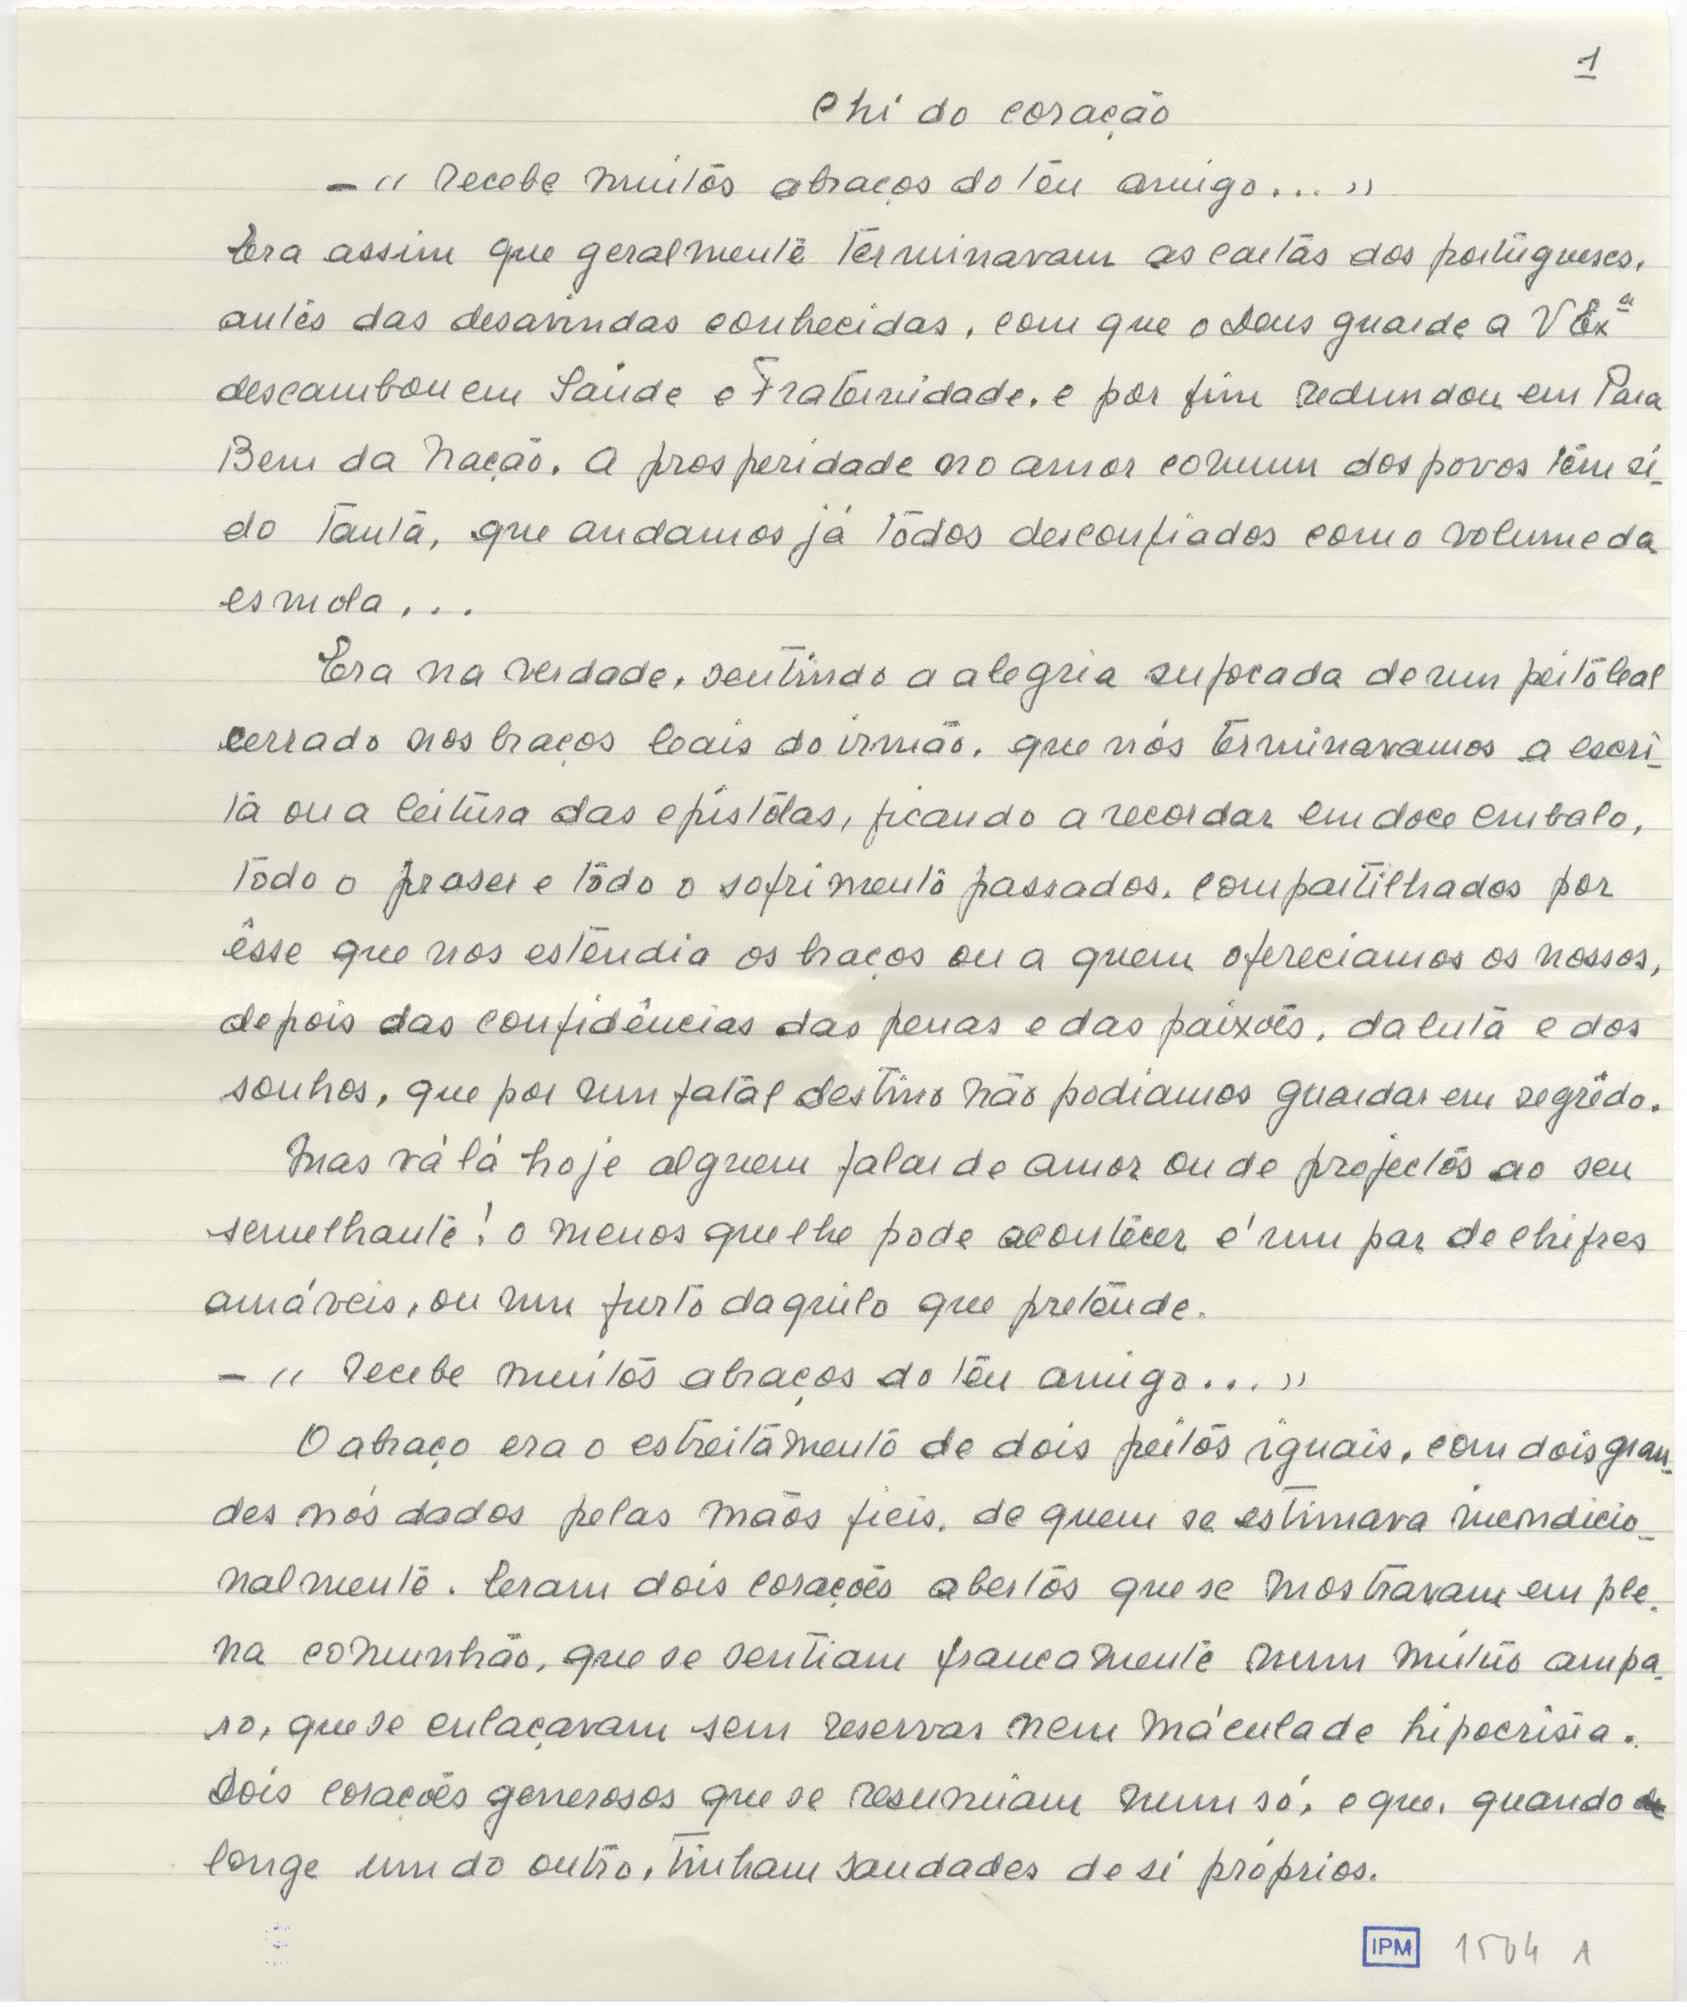 1
Chi do coração
- « Recebe muitos abraços do teu amigo... »
Era assim que geralmente terminavam as cartas dos portugueses,
antes das desavindas conhecidas, com que o Deus guarde a V Exª
descambou em Saúde e Fraternidade, e por fim redundou em Para
Bem da Nação. A prosperidade no amor comum dos povos tem si-
do tanta, que andamos já todos desconfiados com o volume da
esmola...
Era na verdade, sentindo a alegria sufocada de um peito leal
cerrado nos braços leais do irmão, que nós terminavamos a escri-
ta ou a leitura das epistolas, ficando a recordar em doce embalo,
todo o praser e todo o sofrimento passados, compartilhados por
êsse que nos estendia os braços ou a quem ofereciamos os nossos,
depois das confidências das penas e das paixões, da luta e dos
sonhos, que por um fatal destino não podiamos guardar em segrêdo.
Mas vá lá hoje alguem falar de amor ou de projectos ao seu
semelhante! o menos que lhe pode acontecer é um par de chifres
amáveis, ou um furto daquilo que pretende.
- « Recebe muitos abraços do teu amigo... »
O abraço era o estreitamento de dois peitos iguais, com dois gran-
des nós dados pelas mãos fieis, de quem se estimava incondicio-
nalmente. Eram dois corações abertos que se mostravam em ple-
na comunhão, que se sentiam francamente num mútuo ampa-
ro, que se enlaçavam sem reservas nem mácula de hipocrisia.
Dois corações generosos que se resumiam num só, e que, quando
longe um do outro, tinham saudades de si próprios.
IPM 1504 A